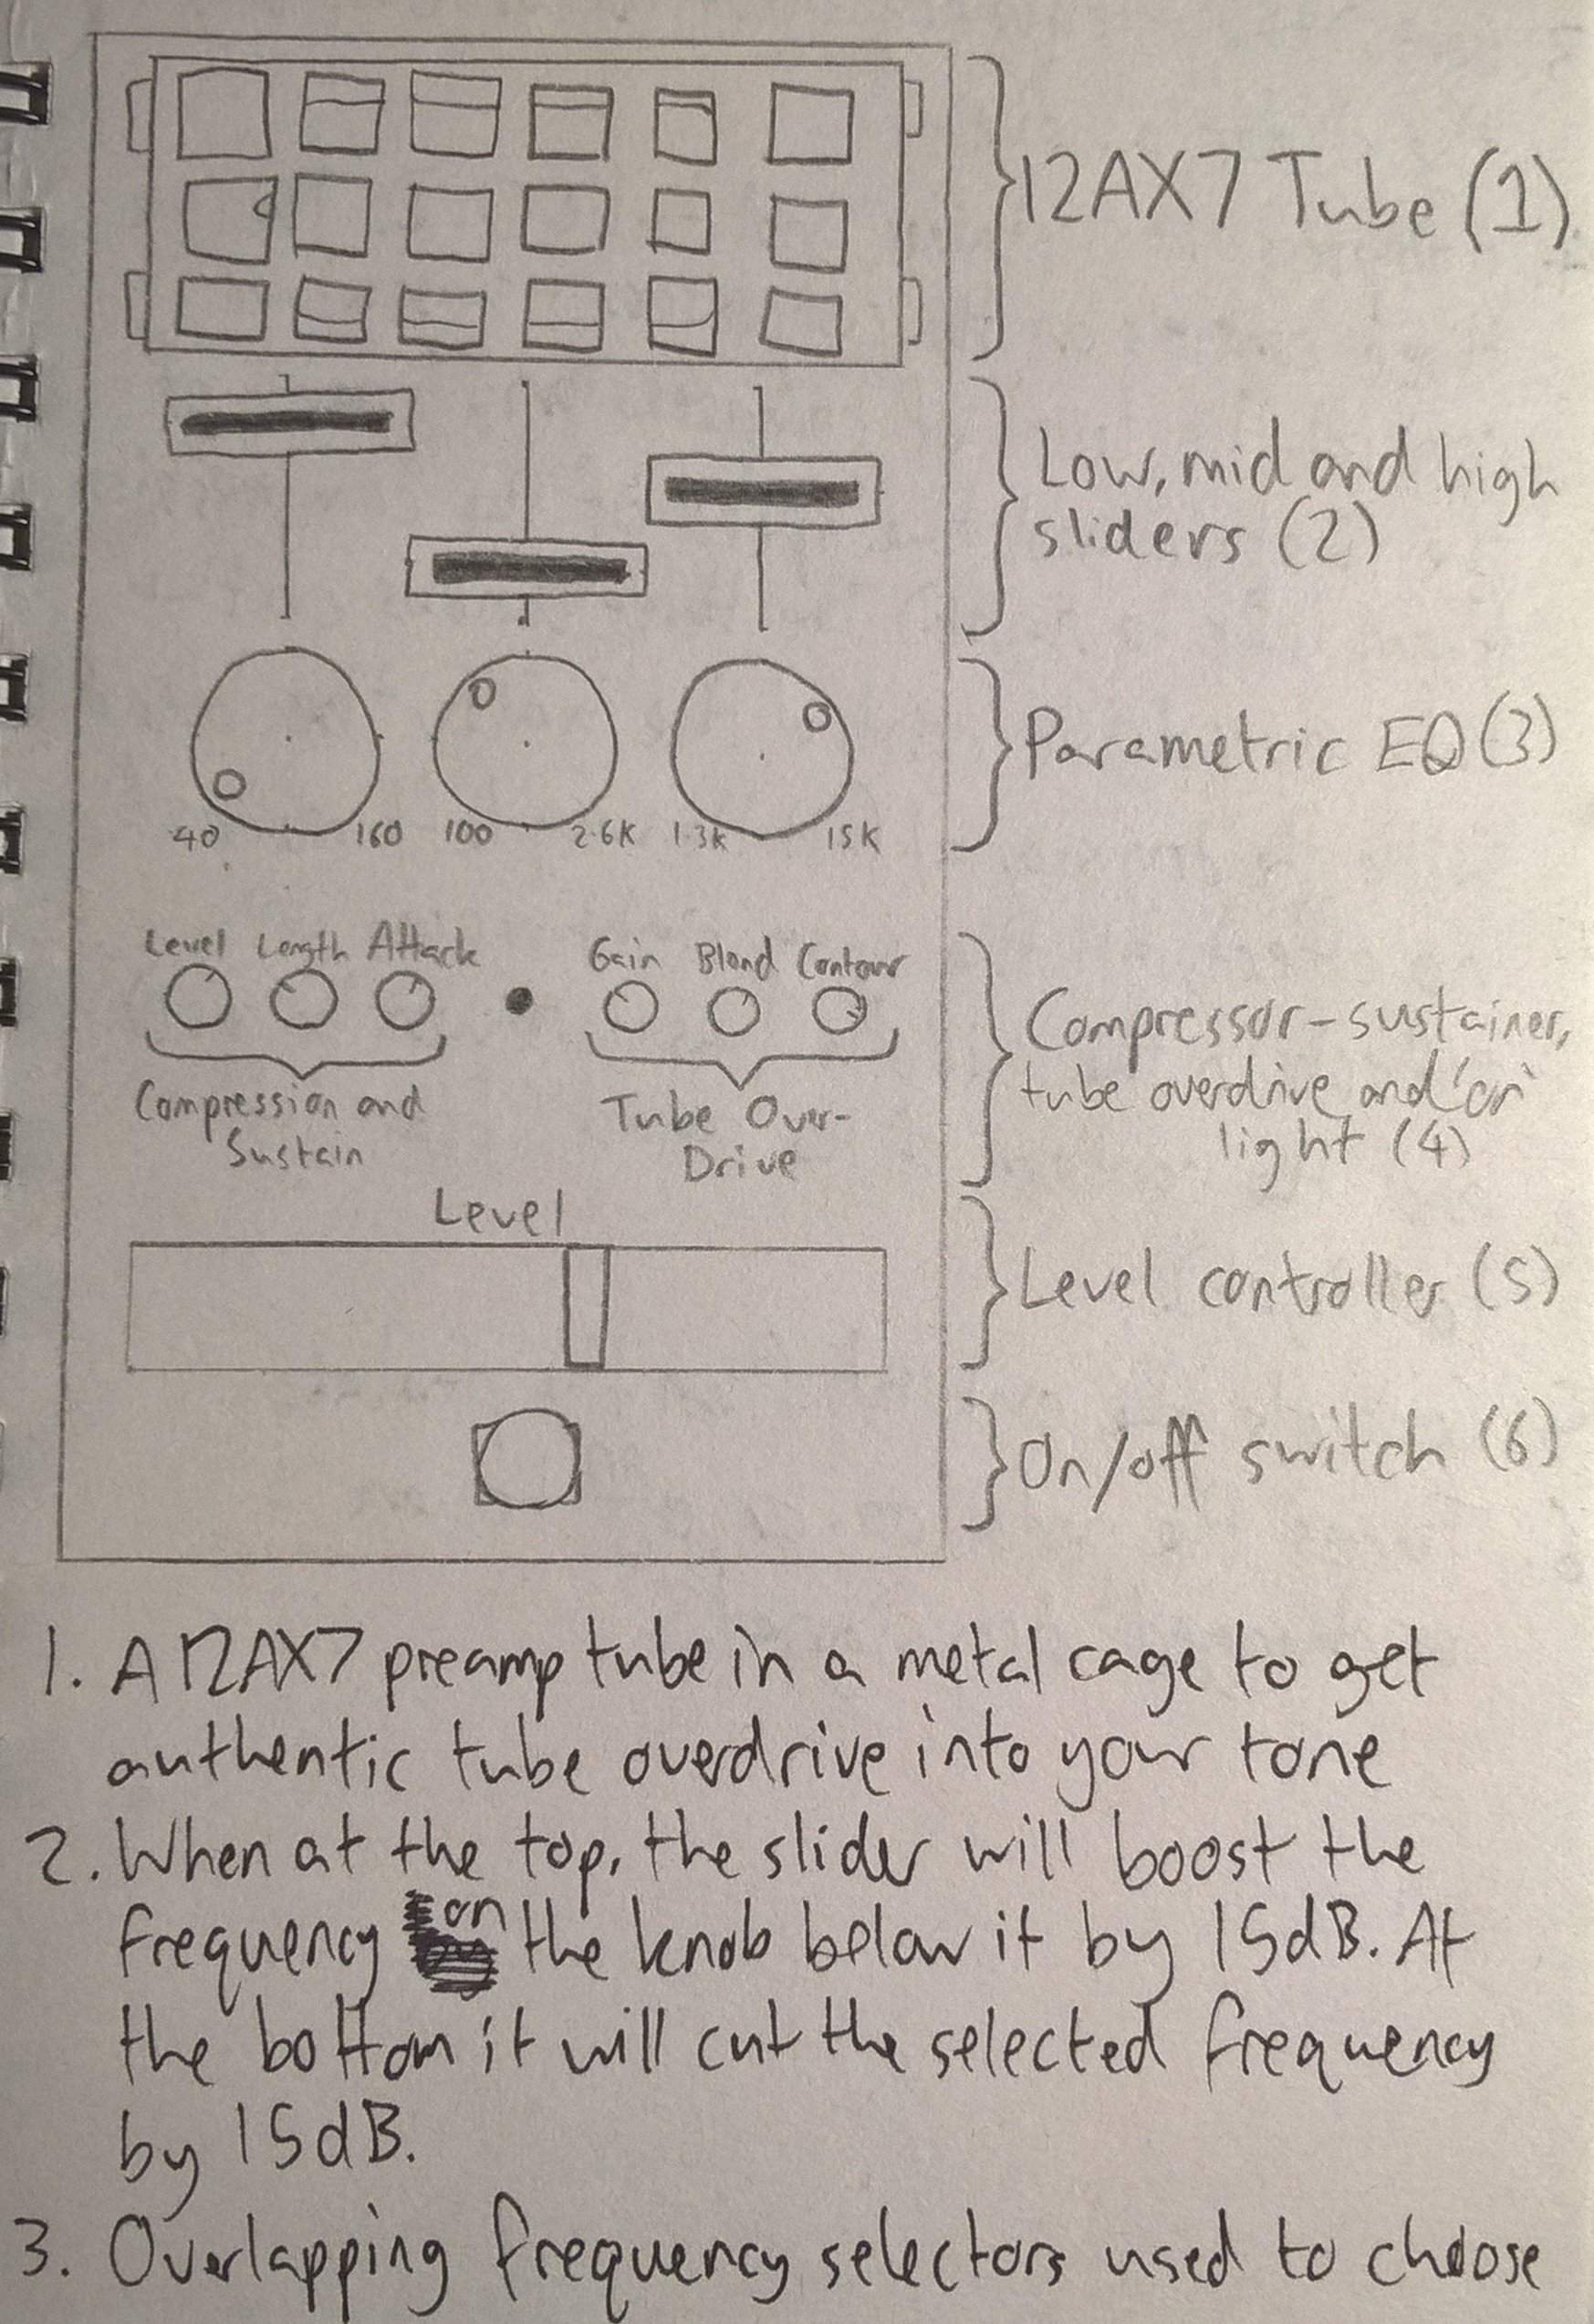 12AX7 Tube (1)
Low, mid and high
sliders (2)
Parametric EQ (3)
40 160 100 2.6K 1.3K 15K
Level Length Attack Gain Blend Contour
Compression and
Sustain
Tube Over-
Drive
Compressor-sustainer,
tube overdrive and 'on'
light (4)
Level
Level controller (5)
On/off switch (6)
1. A 12AX7 preamp tube in a metal cage to get
authentic tube overdrive into your tone
2. When at the top, the slider will boost the
frequency on the knob below it by 15dB. At
the bottom it will cut the selected frequency
by 15dB.
3. Overlapping frequency selectors used to choose